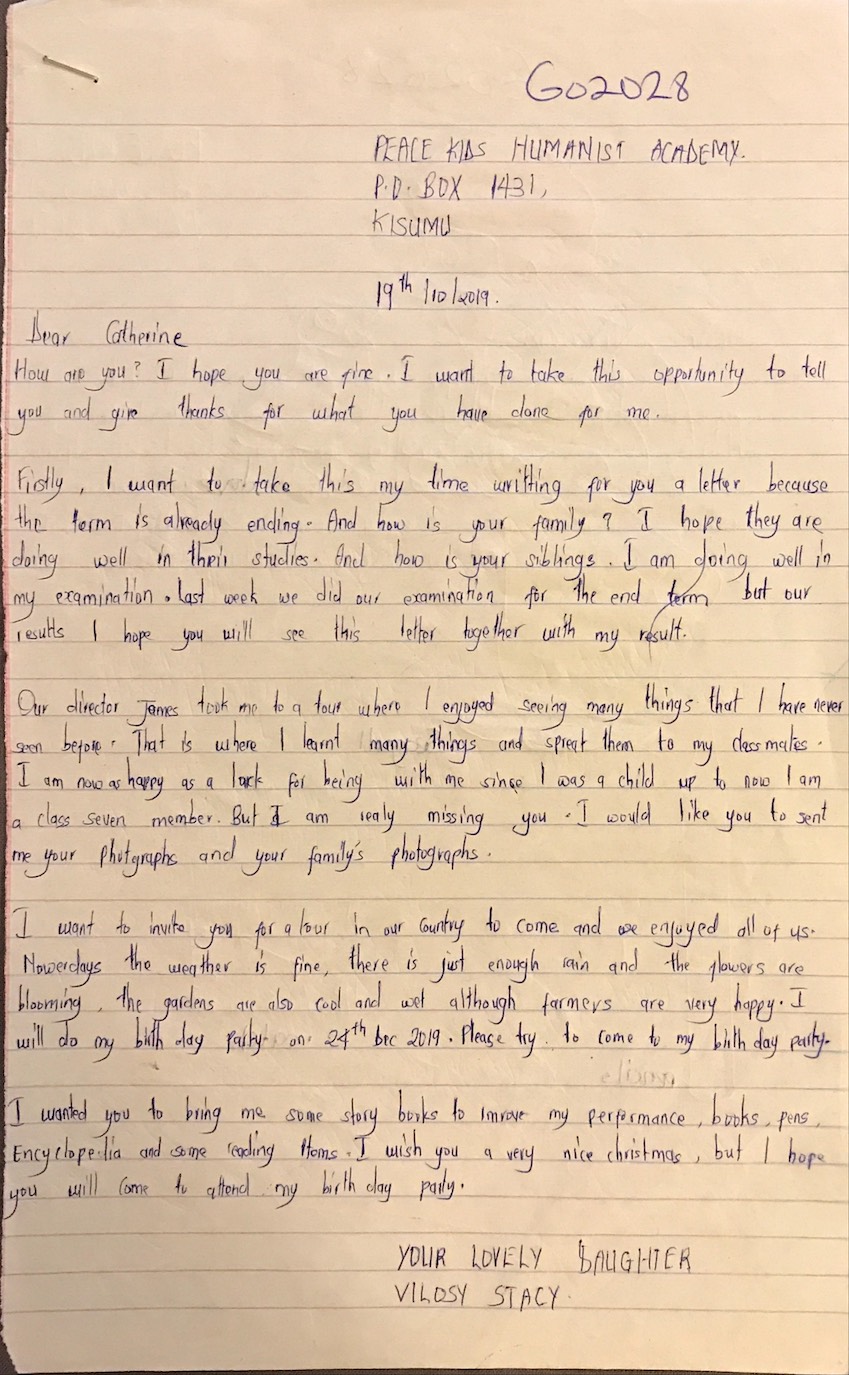 GO2028
PEACE KIDS HUMANIST ACADEMY.
P.O. BOX 1431,
KISUMU
19th /10/2019.
Dear Catherine
How are you? I hope you are fine. I want to take this opportunity to tell
you and give thanks for what you have done for me.
Firstly, I want to take this my time writting for you a letter because
the term is already ending. And how is your family? I hope they are
doing well in their studies. And how is your siblings. I am doing well in
my examination. Last week we did our examination for the end term but our
results I hope you will see this letter together with my result.
Our director James took me to a tour where I enjoyed seeing many things that I have never
seen before. That is where I learnt many things and spreat them to my classmates.
I am now as happy as a lark for being with me since I was a child up to now I am
a class seven member. But I am realy missing you. I would like you to sent
me your photgraphs and your family's photographs.
I want to invite you for a tour in our country to come and we enjoyed all of us.
Nowerdays the weather is fine, there is just enough rain and the flowers are
blooming, the gardens are also cool and wet although farmers are very happy. I
will do my birth day party on 24th Dec 2019. Please try to come to my birth day party.
I wanted you to bring me some story books to imrove my performance, books, pens,
Encyclopedia and some reading items. I wish you a very nice christmas, but I hope
you will come to attend my birth day party.
YOUR LOVELY DAUGHTER
VILOSY STACY.